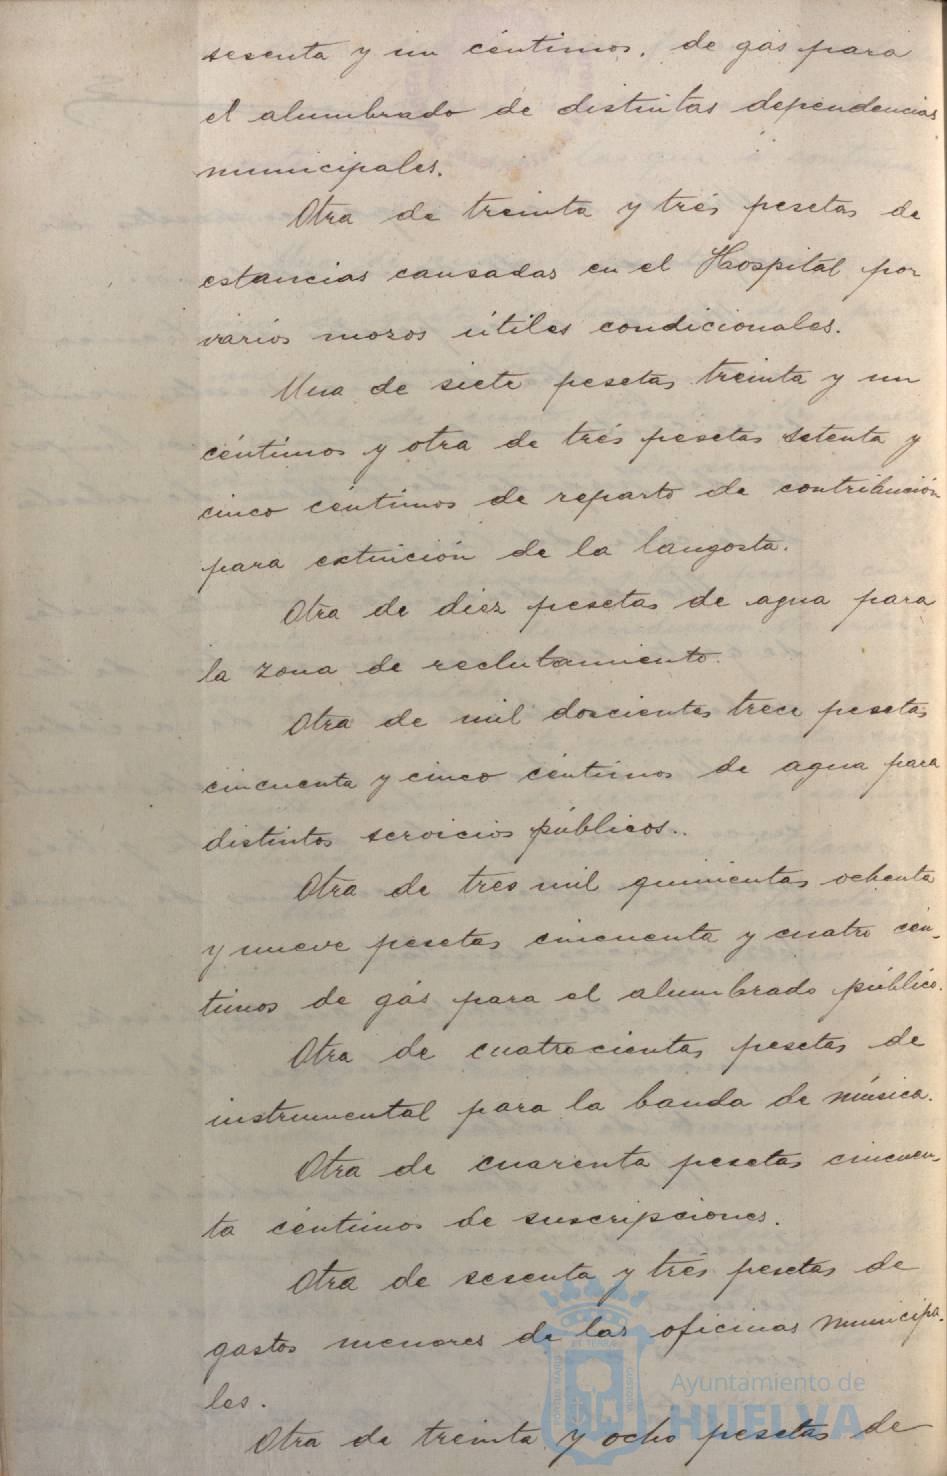 sesenta y un céntimos. de gas para
el alumbrado de distintas dependencias
municipales.
Otra de treinta y tres pesetas de
estancias causadas en el Hospital por
varios mozos útiles condicionales.
Una de siete pesetas treinta y un
céntimos y otra de tres pesetas setenta y
cinco céntimos de reparto de contribución
para extinción de la langosta.
Otra de diez pesetas de agua para
la zona de reclutamiento.
Otra de mil doscientas trece pesetas
cincuenta y cinco céntimos de agua para
distintos servicios públicos.
Otra de tres mil quinientas ochenta
y nueve pesetas cincuenta y cuatro cén-
timos de gas para el alumbrado público.
Otra de cuatrocientas pesetas de
instrumental para la banda de música.
Otra de cuarenta pesetas cincuen-
ta céntimos de suscripciones.
Otra de sesenta y tres pesetas de
gastos menores de las oficinas municipa-
les.
Otra de treinta y ocho pesetas de
Ayuntamiento de
HUELVA